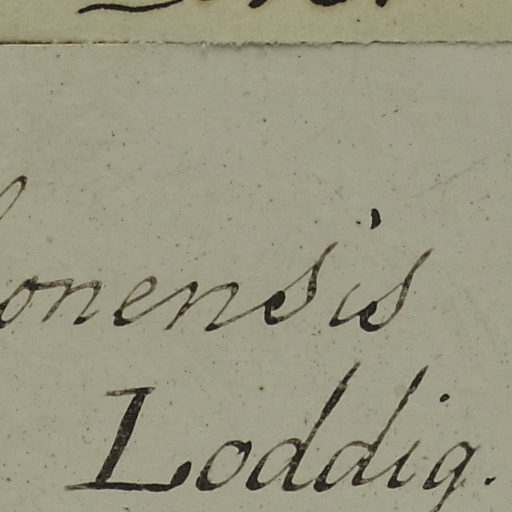 onensis
Loddig.